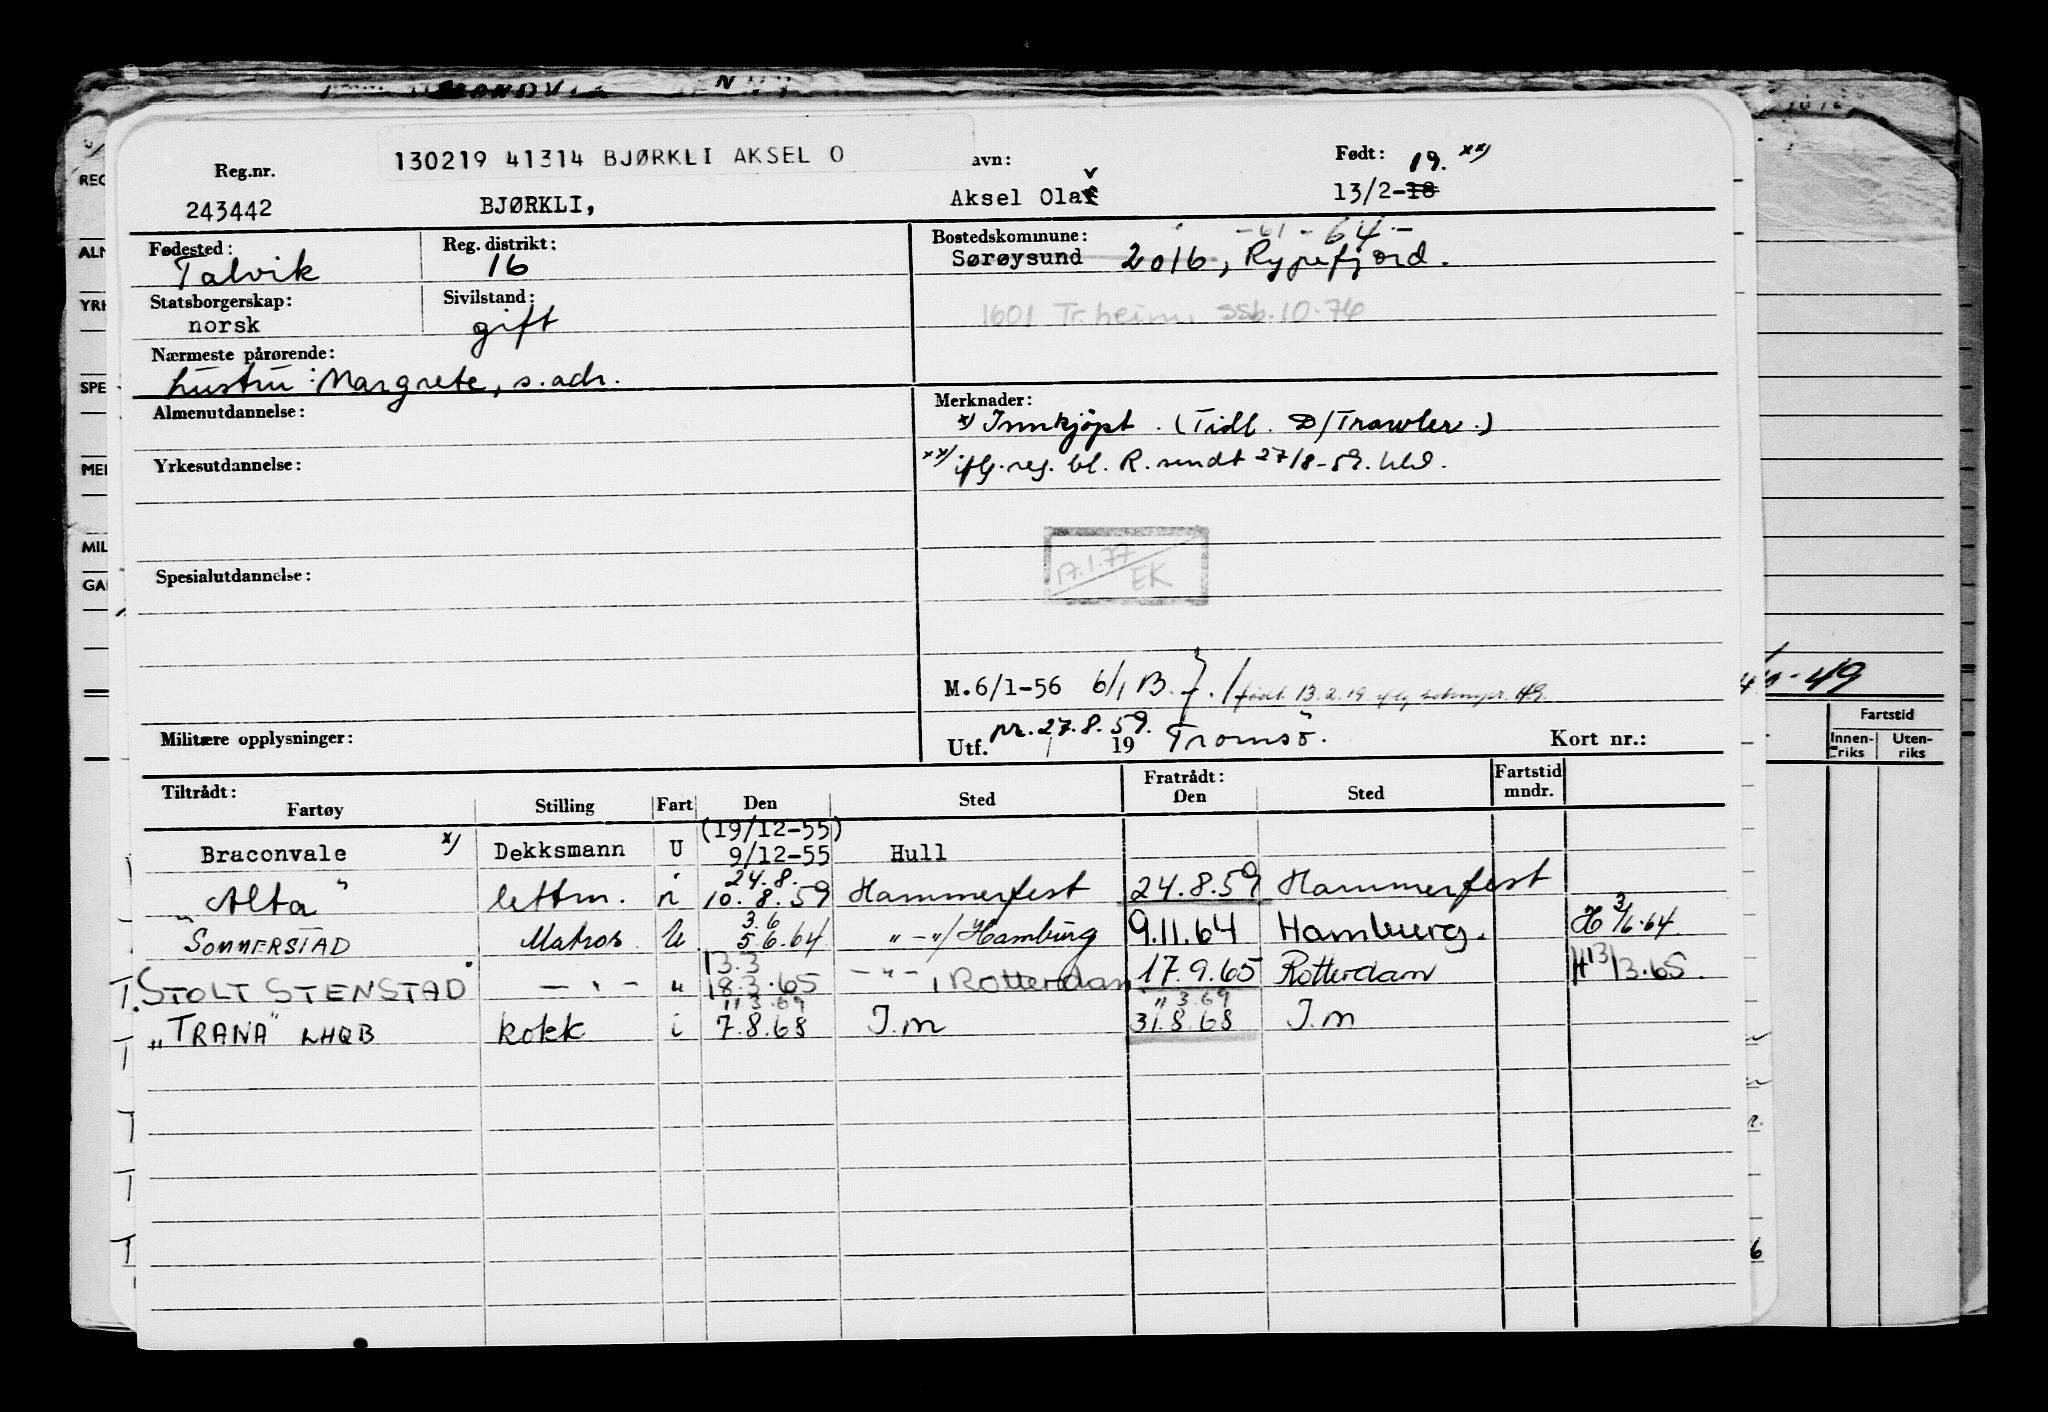 130219 41314 BJØRKLI AKSEL O
Reg.nr. avn: Født: 19. xx)
243442 BJØRKLI, Aksel Olav 13/2-18
Fødested: Reg. distrikt: Bostedskommune: -61-64.-
Talvik 16 Sørøysund 2016, Rypefjord.
Statsborgerskap: Sivilstand:
norsk gift 1601 Tr.heim, ssb.10.76
Nærmeste pårørende:
hustru: Margrete, s.adr.
Almenutdannelse: Merknader:
x) Innkjøpt. (Tidl. D/Trawler.)
Yrkesutdannelse: xx) iflg. reg. bl. R. sendt 27/8-59.
17.1.77
EK
Spesialutdannelse:
M.6/1-56 6/1 B. f. / født 13.2.19 iflg
Militære opplysninger: Utf. pr. 27.8.59. 19 Tromsö. Kort nr.:
Tiltrådt: Fratrådt: Fartstid
Fartøy Stilling Fart Den Sted Den Sted mndr.
(19/12-55)
Braconvale x) Dekksmann U 9/12-55 Hull
24.8.
"Alta" lettm. i 10.8.59 Hammerfest 24.8.59 Hammerfest
3.6
"SOMMERSTAD Matros U 5.6.64 "-"/Hamburg 9.11.64 Hamburg. H 3/6.64
13.3
T. STOLT STENSTAD -"- " 18.3.65 -"-, Rotterdam 17.9.65 Rotterdam H 13/3.65.
11.3.69 11.3.69
"TRANA" LHQB kokk i 7.8.68 I.m 31.8.68 I.m
REG
ALM
YRK
SPE
MER
MIL
GAR
49
Fartstid
Innen-
riks
Uten-
riks